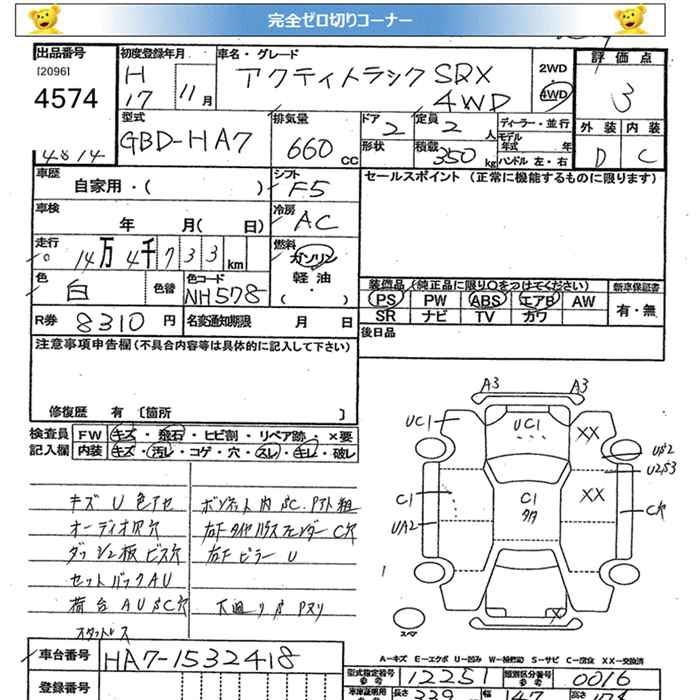 完全ゼロ切りコーナー
出品番号
[2096]
4574
4814
初度登録年月
H
17 11月
車名・グレード
アクティトラック SDX
4WD
2WD
4WD
評価点
3
外装 内装
D C
型式
GBD-HA7
排気量
660cc
ドア
2
定員
2人
形状
積載
350kg
ディーラー・並行
モデル年式 年
ハンドル 左・右
車歴
自家用・( )
シフト
F5
セールスポイント (正常に機能するものに限ります)
車検
年 月( 日)
冷房
AC
走行
14万4千733km
燃料
ガソリン
軽油
( ・ )
色
白
色替
色コード
NH578
装備品(純正品に限り○をつけてください)
PS PW ABS エアB AW
SR ナビ TV カワ
新車保証書
有・無
R券 8310円
名変通知期限 月 日
後日品
注意事項申告欄(不具合内容等は具体的に記入して下さい)
修復歴 有 [箇所 ]
検査員
記入欄
FW キズ・飛石・ヒビ割・リペア跡・×要
内装 キズ・汚レ・コゲ・穴・スレ・キレ・破レ
キズ U 色アセ
オーディオ沢穴
ダッシュ板ビス穴
セットバックAU
荷台AUSC穴
スタットレス
ボンネット内SC
右下タイヤハウスフェンダーC穴
右下ピラー U
下廻りS Pヌリ
A3 A3
UC1 UC1 XX
US2
U2S3
C1 C1 XX C穴
UA2
X
スペア
A-キズ E-エクボ U-凹み W-補修跡 S-サビ C-腐食 XX-交換済
車台番号
HA7-1532418
登録番号
型式指定番号
参考
12251
類別区分番号
参考
0016
長さ 339
幅 147